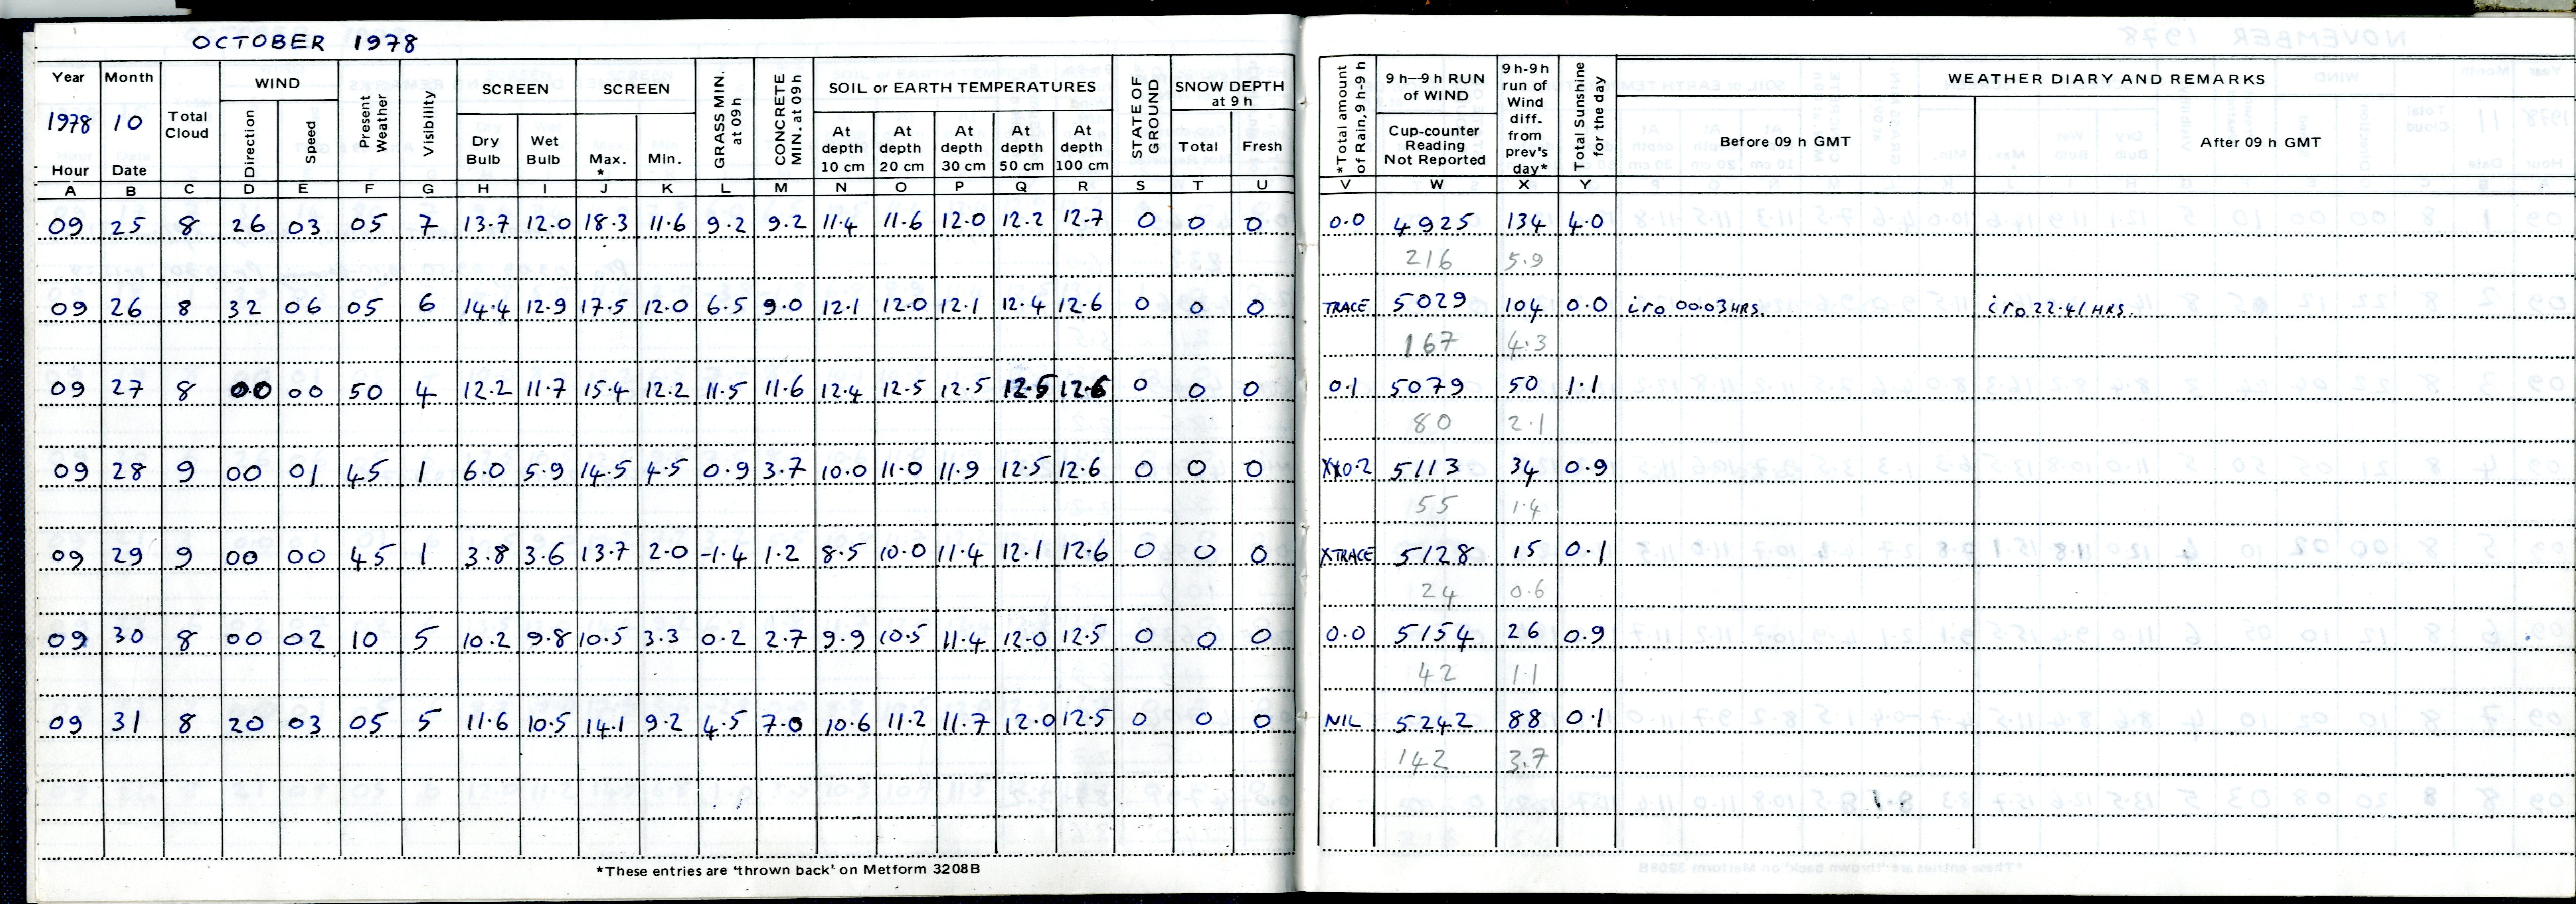 OCTOBER 1978
Year Month Total Cloud WIND Present Weather Visibility SCREEN SCREEN GRASS MIN. at 09h CONCRETE MIN. at 09h SOIL or EARTH TEMPERATURES STATE OF GROUND SNOW DEPTH at 9 h *Total amount of Rain, 9 h-9 h 9 h—9 h RUN of WIND 9 h-9h run of Wind diff. from prev's day* Total Sunshine for the day WEATHER DIARY AND REMARKS
1978 10 Direction Speed Dry Bulb Wet Bulb Max. * Min. At depth 10 cm At depth 20 cm At depth 30 cm At depth 50 cm At depth 100 cm Total Fresh Cup-counter Reading Not Reported Before 09 h GMT After 09 h GMT
Hour Date
A B C D E F G H I J K L M N O P Q R S T U V W X Y
09 25 8 26 03 05 7 13.7 12.0 18.3 11.6 9.2 9.2 11.4 11.6 12.0 12.2 12.7 0 0 0 0.0 4925 134 4.0
216 5.9
09 26 8 32 06 05 6 14.4 12.9 17.5 12.0 6.5 9.0 12.1 12.0 12.1 12.4 12.6 0 0 0 TRACE 5029 104 0.0 iro 00.03 HRS. iro 22.41 HRS.
167 4.3
09 27 8 00 00 50 4 12.2 11.7 15.4 12.2 11.5 11.6 12.4 12.5 12.5 12.5 12.6 0 0 0 0.1 5079 50 1.1
80 2.1
09 28 9 00 01 45 1 6.0 5.9 14.5 4.5 0.9 3.7 10.0 11.0 11.9 12.5 12.6 0 0 0 XX0.2 5113 34 0.9
55 1.4
09 29 9 00 00 45 1 3.8 3.6 13.7 2.0 -1.4 1.2 8.5 10.0 11.4 12.1 12.6 0 0 0 XTRACE 5128 15 0.1
24 0.6
09 30 8 00 02 10 5 10.2 9.8 10.5 3.3 0.2 2.7 9.9 10.5 11.4 12.0 12.5 0 0 0 0.0 5154 26 0.9
42 1.1
09 31 8 20 03 05 5 11.6 10.5 14.1 9.2 4.5 7.0 10.6 11.2 11.7 12.0 12.5 0 0 0 NIL 5242 88 0.1
142 3.7
*These entries are 'thrown back' on Metform 3208B